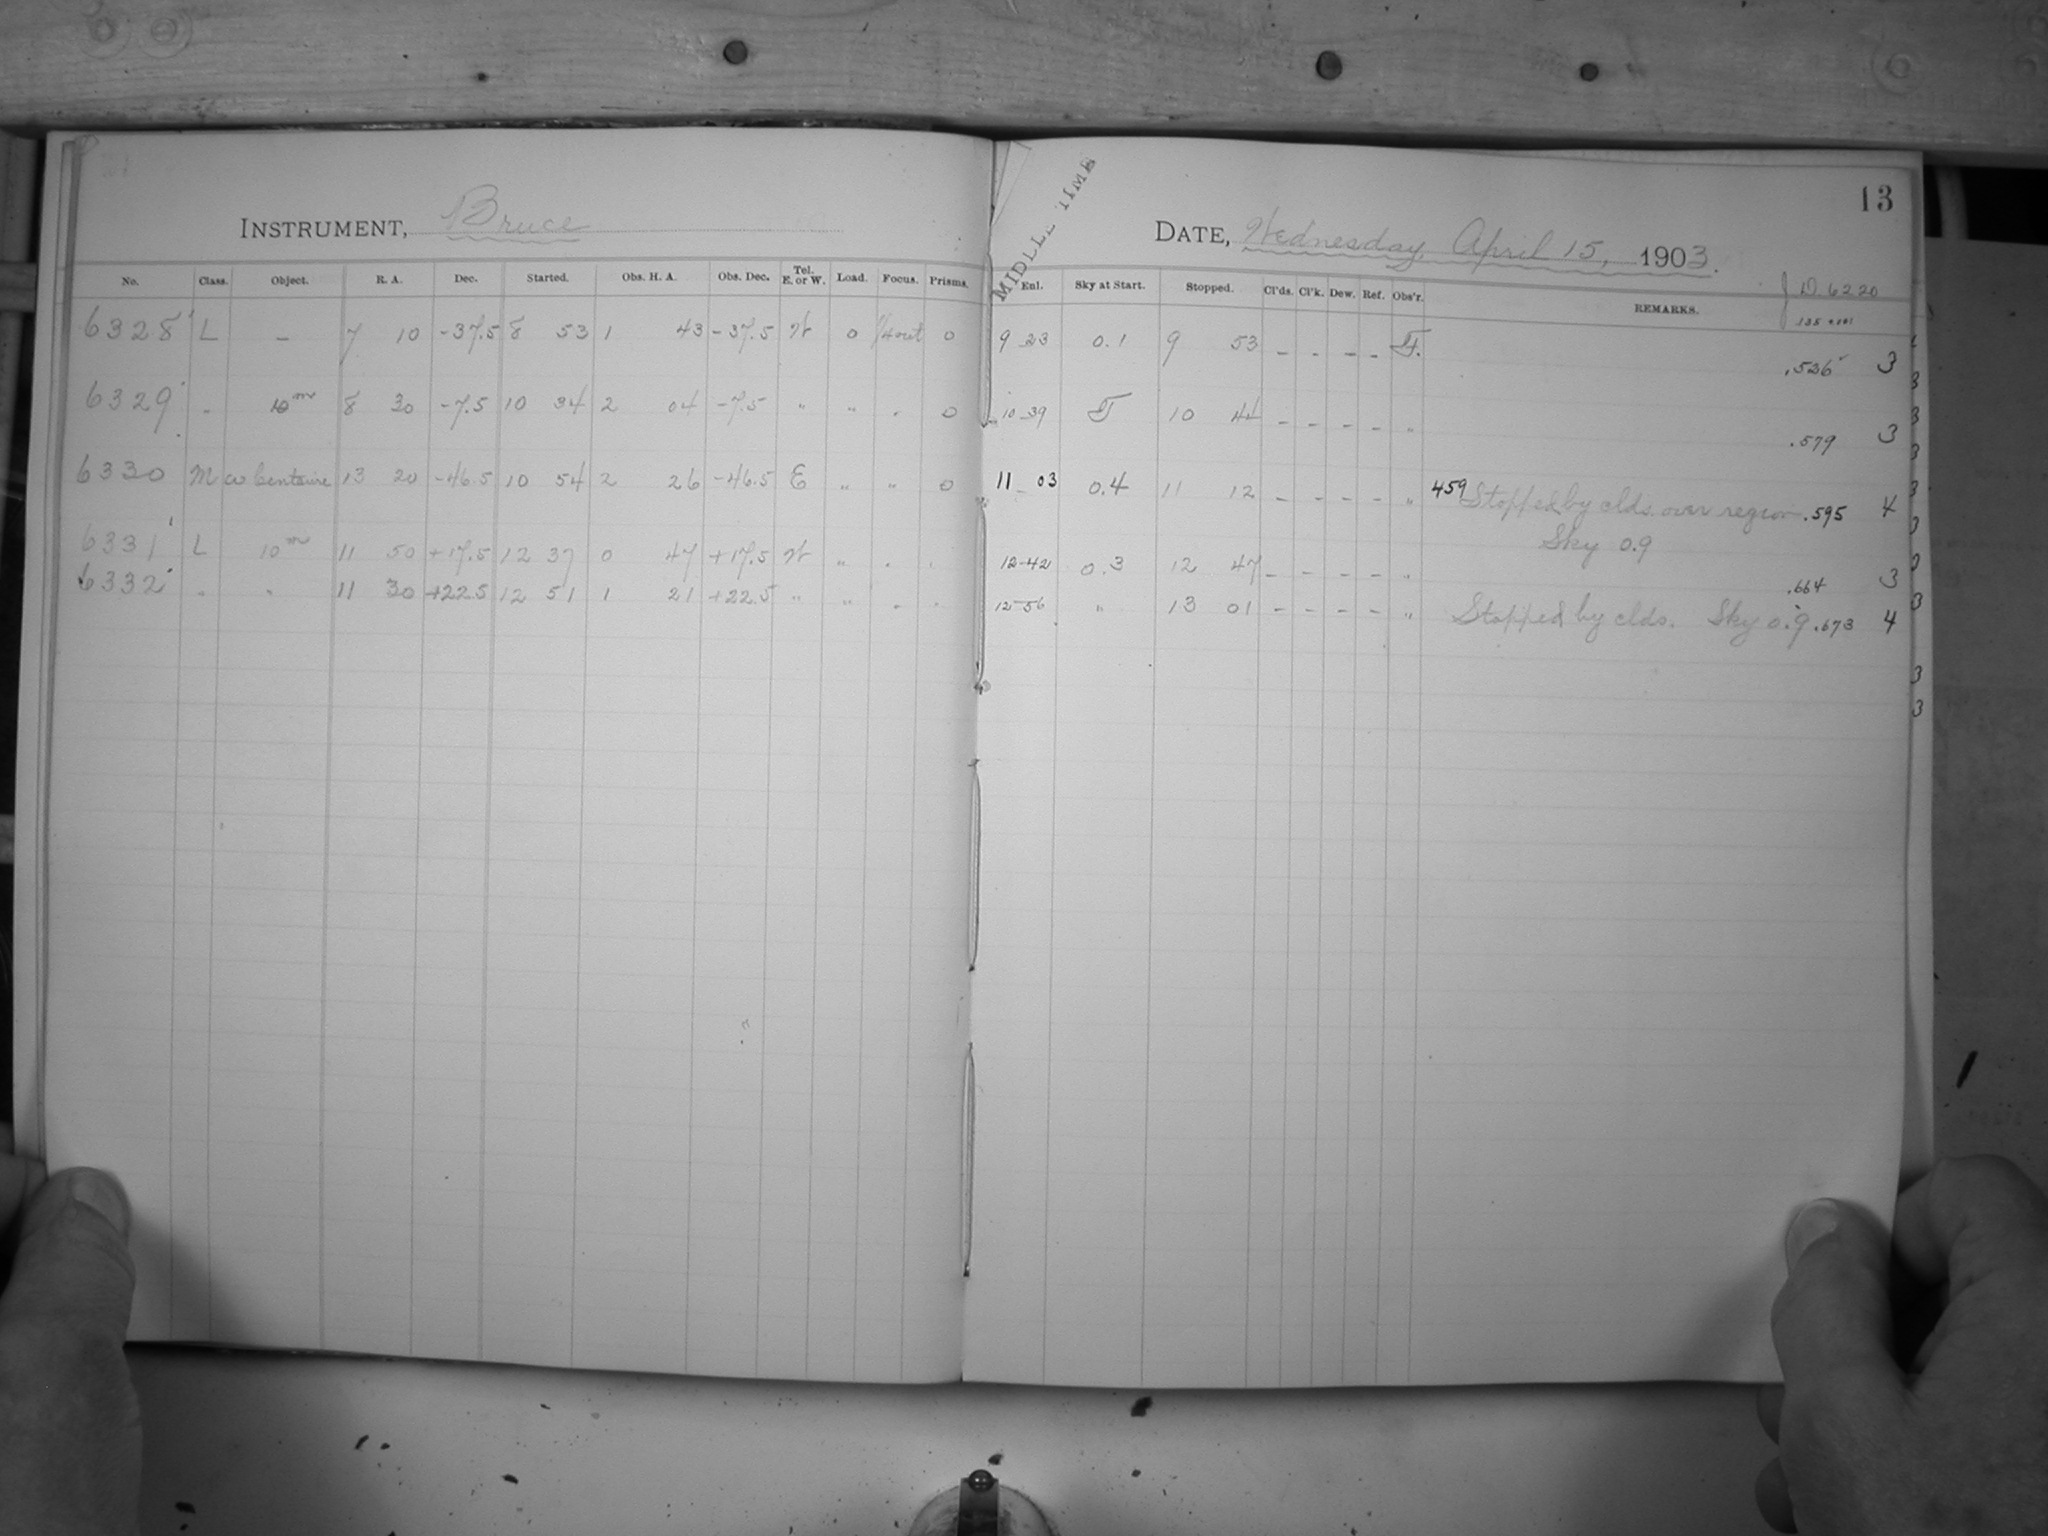 INSTRUMENT, Bruce
No. Class. Object. R. A. Dec. Started. Obs. H. A. Obs. Dec. Tel. E. or W. Load. Focus. Prisms.
6328 L – 7 10 -37.5 8 53 1 43 -37.5 W 0 1/4 out 0
6329 " 10m 8 30 -7.5 10 34 2 04 -7.5 " " " 0
6330 M ω Centaure 13 20 -46.5 10 54 2 26 -46.5 E " " 0
6331 L 10m 11 50 +17.5 12 37 0 47 +17.5 W " " "
6332 " " 11 30 +22.5 12 51 1 21 +22.5 " " " "
13
MIDDLE TIME
DATE, Wednesday, April 15, 1903.
J.D. 6220
Enl. Sky at Start. Stopped. Cl'ds. Cl'k. Dew. Ref. Obs'r. REMARKS.
9 23 0.1 9 53 – – – – .536 3
10 39 10 44 – – – – " .579 3
11 03 0.4 11 12 – – – – " 459 Stopped by clds. over region .595 4
Sky 0.9
12-42 0.3 12 47 – – – – " .664 3
12-56 " 13 01 – – – – " Stopped by clds. Sky 0.9 .673 4